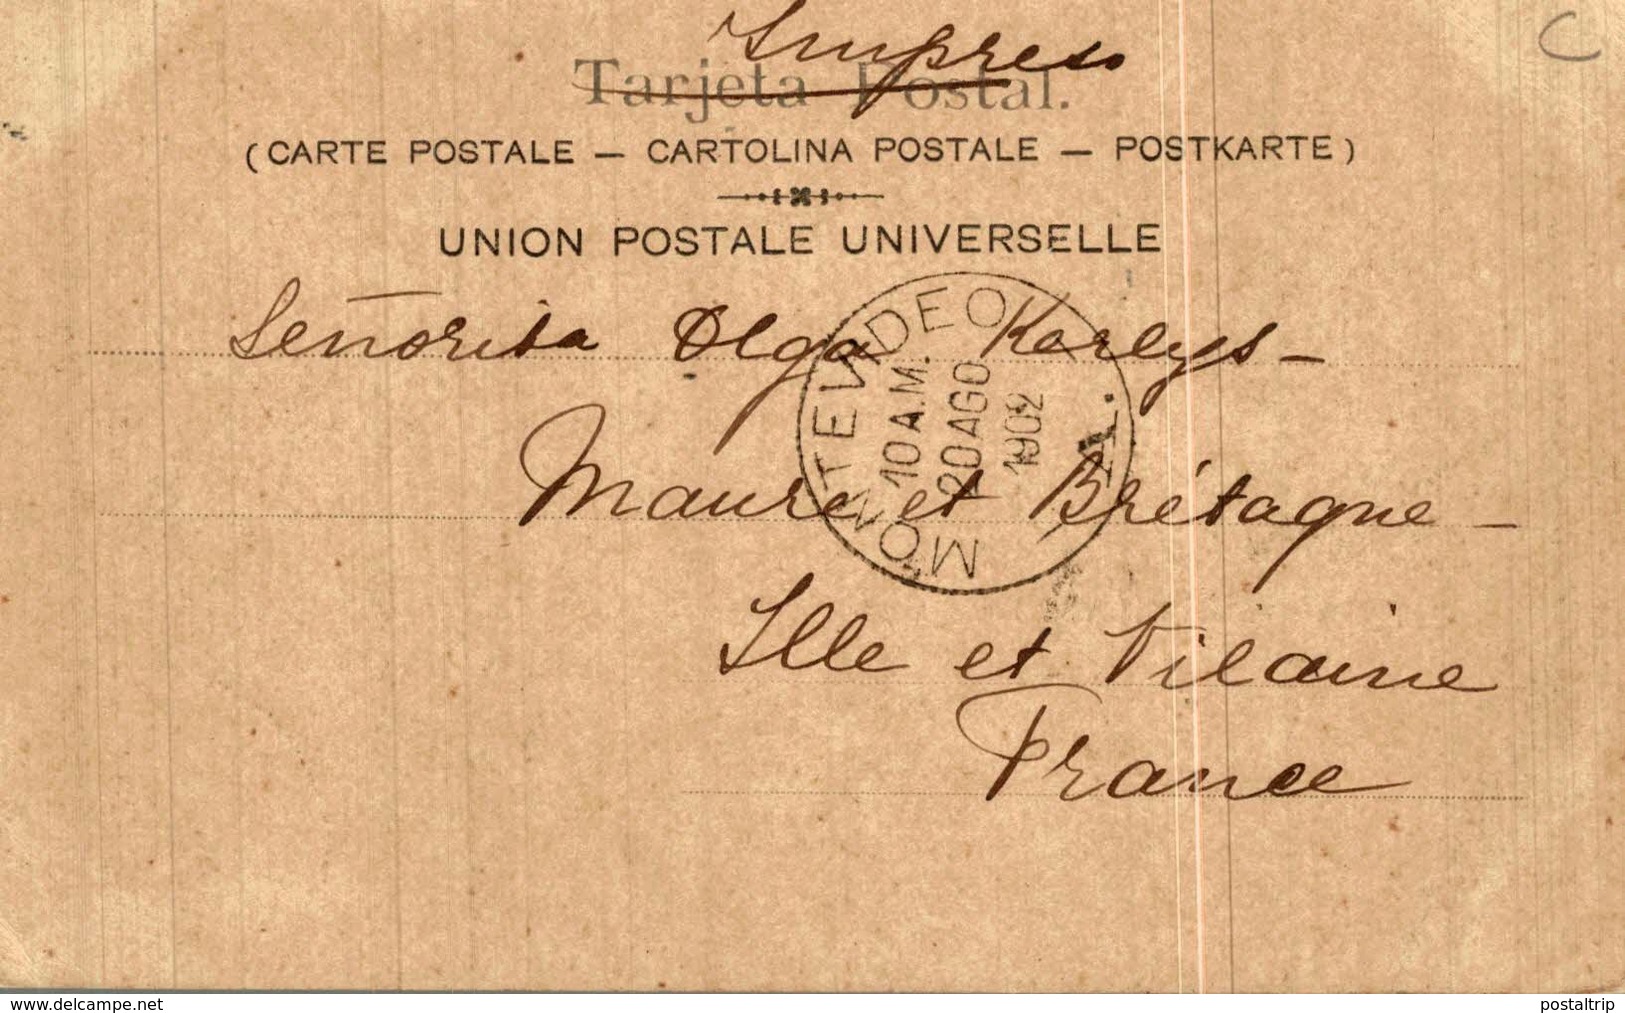 Impreso
Tarjeta Postal.
(CARTE POSTALE — CARTOLINA POSTALE — POSTKARTE)
UNION POSTALE UNIVERSELLE
Señorita Olga Kerlys -
Maure et Brétagne -
Ille et Vilaine
France
MONTEVIDEO
10 A.M.
20 AGO
1902
C
www.delcampe.net
postaltrip